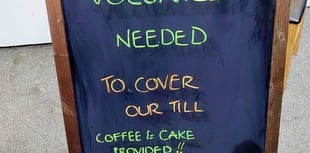 NEEDED
TO COVER
OUR TILL
COFFEE & CAKE
PROVIDED!!